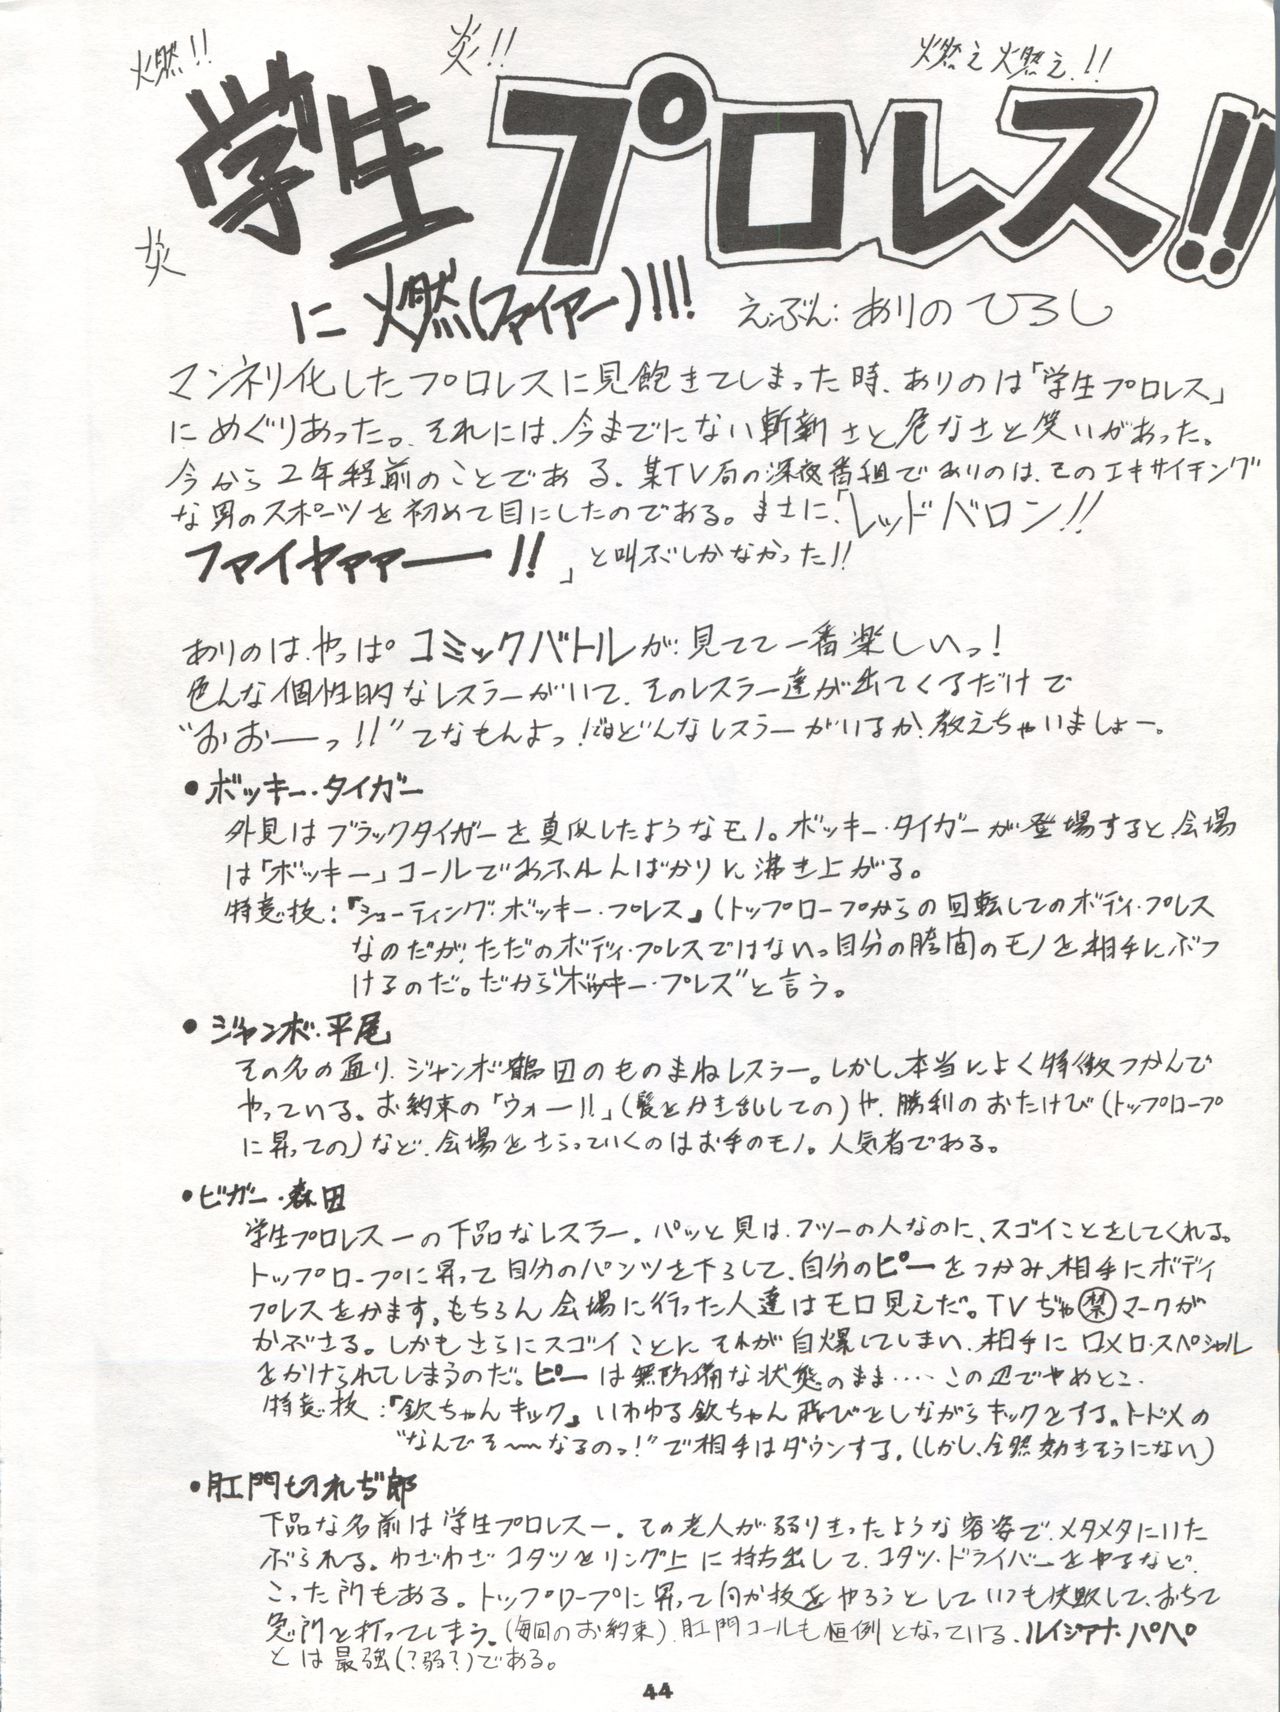 燃!!
炎!!
燃え燃え!!
学生プロレス!!
炎
に燃(ファイアー)!!!
え・ぶん:ありのひろし
マンネリ化したプロレスに見飽きてしまった時、ありのは「学生プロレス」
にめぐりあった。それには、今までにない斬新さと危なさと笑いがあった。
今から2年程前のことである、某TV局の深夜番組でありのは、そのエキサイチング
な男のスポーツを初めて目にしたのである。まさに、「レッドバロン!!
ファイヤァァー!!」と叫ぶしかなかった!!
ありのは、やっぱ コミックバトルが、見てて一番楽しいっ!
色んな個性的なレスラーがいて、そのレスラー達が出てくるだけで
“おおーっ!!”てなもんよっ!ではどんなレスラーがいるか、教えちゃいましょー。
•ボッキー・タイガー
外見はブラックタイガーを真似したようなモノ。ボッキー・タイガーが登場すると、会場
は「ボッキー」コールであふれんばかりに沸き上がる。
特意技:『シューティング・ボッキー・プレス』(トップロープからの回転してのボディ・プレス
なのだが、ただのボディ・プレスではないっ自分の股間のモノを相手にぶつ
けるのだ。だから“ボッキー・プレス”と言う。
•ジャンボ・平尾
その名の通り、ジャンボ鶴田のものまねレスラー。しかし、本当によく特徴つかんで
やっている。お約束の「ウォー!!」(髪をかき乱しての)や、勝利のおたけび(トップロープ
に昇っての)など、会場をさらっていくのはお手のモノ。人気者である。
•ビガー・森田
学生プロレス一の下品なレスラー。パッと見は、フツーの人なのに、スゴイことをしてくれる。
トップロープに昇って自分のパンツを下ろして、自分のピーをつかみ、相手にボディ
プレスをかます。もちろん会場に行った人達はモロ見えだ。TVぢゃ㊙マークが
かぶさる。しかもさらにスゴイことに、それが自爆してしまい、相手にロメロ・スペシャル
をかけられてしまうのだ。ピーは無防備な状態のまま‥‥この辺でやめとこ、
特意技:『欽ちゃんキック』いわゆる欽ちゃん飛びをしながらキックをする。トドメの
“なんでそ〜なるのっ!”で相手はダウンする。(しかし、全然効きそうにない)
•肛門切れぢ郎
下品な名前は学生プロレス一。その老人が弱りきったような容姿で、メタメタにいた
ぶられる。わざわざコタツをリング上に持ち出して、コタツ・ドライバーをやるなど、
こった所もある。トップロープに昇って何か技をやろうとしていつも失敗して、おちて
急所を打ってしまう。(毎回のお約束)、肛門コールも恒例となっている、ルイジアナ・パペ
とは最強(?弱?)である。
44